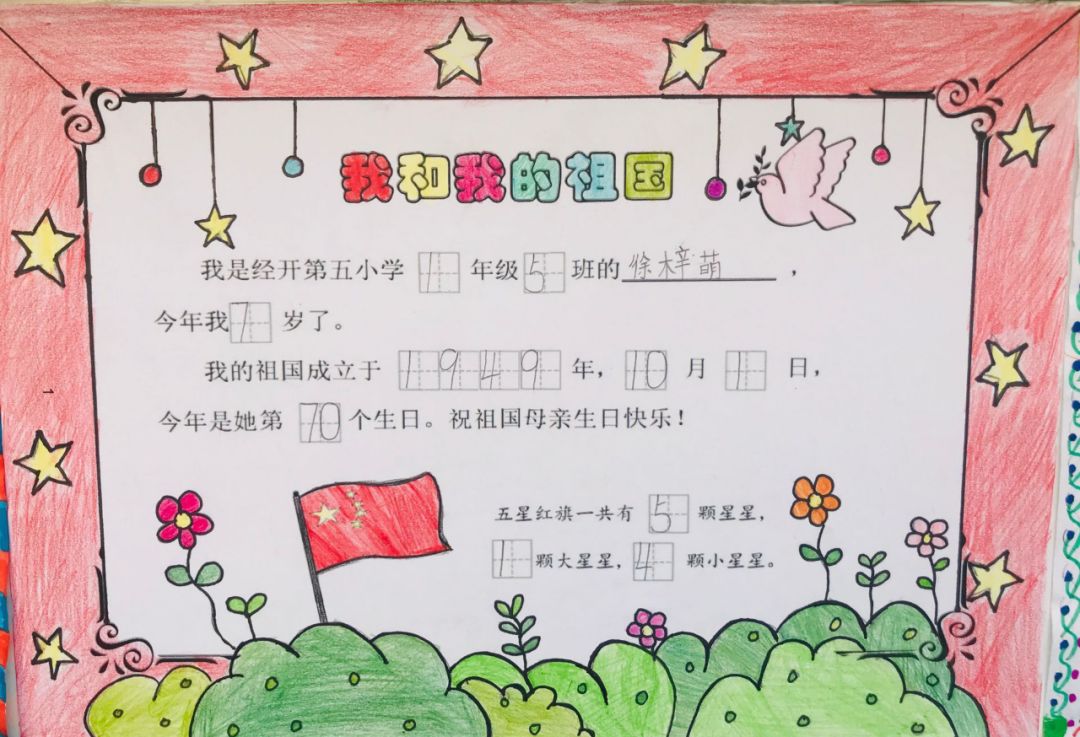 我和我的祖国
我是经开第五小学 1 年级 5 班的 徐梓萌 ，
今年我 7 岁了。
我的祖国成立于 1949 年， 10 月 1 日，
今年是她第 70 个生日。祝祖国母亲生日快乐！
五星红旗一共有 5 颗星星，
1 颗大星星， 4 颗小星星。